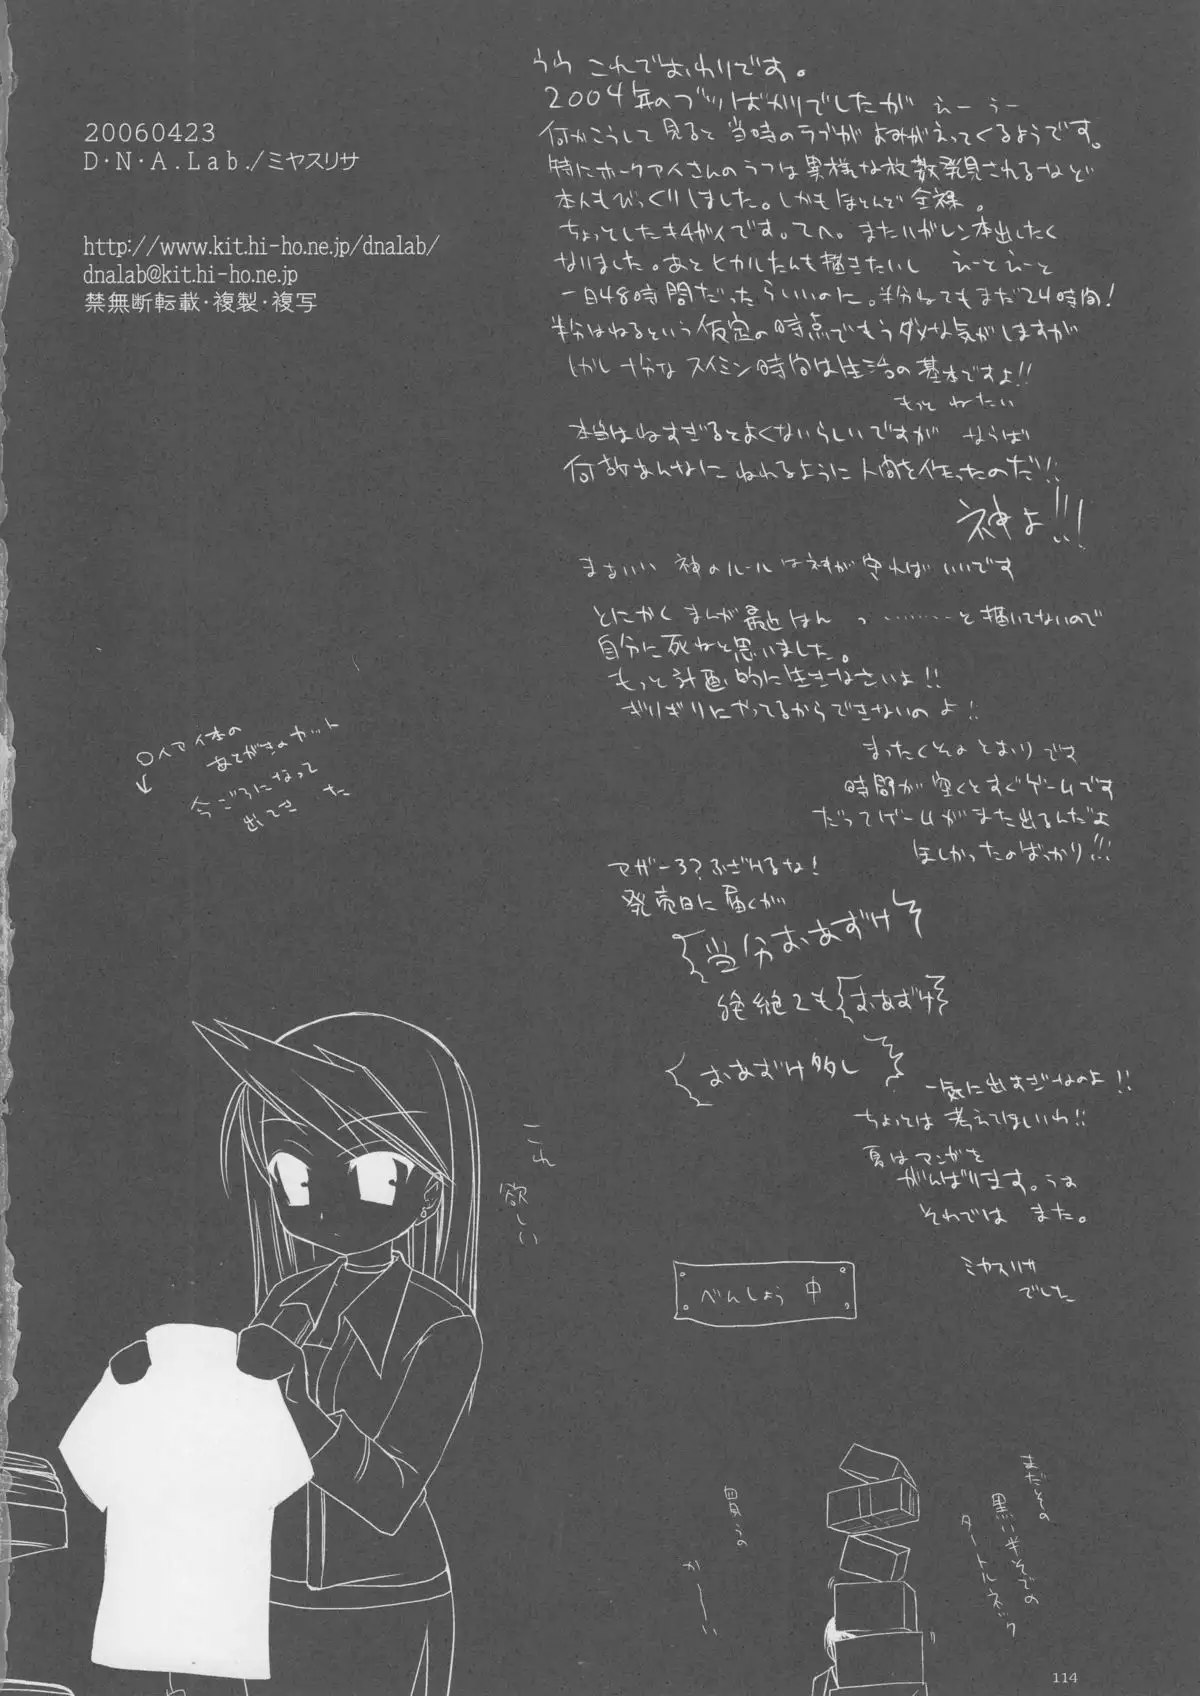 20060423
D・N・A.Lab./ミヤスリサ
http://www.kit.hi-ho.ne.jp/dnalab/
dnalab@kit.hi-ho.ne.jp
禁無断転載・複製・複写
うう これでおわりです。
2004年のブツばかりでしたが えー うー
何かこうして見ると当時のラブがよみがえってくるようです。
特にホークアイさんのラフは異様な枚数発見されるなど
本人もびっくりしました。しかもほとんど全裸。
ちょっとしたキチガイです。てへ。またいがレン本出したく
なりました。あとヒカルたんも描きたいし えーとえーと
一日48時間だったらいいのに。半分ねてもまだ24時間!
半分はねるという仮定の時点でもうダメな気がしますが
しかし十分なスイミン時間は生活の基本ですよ!!
もっと ねたい
本当はねすぎるとよくないらしいですが ならば
何故あんなにねれるように人間を作ったのだ!!
神よ!!!
まあいい 神のルールは神が定めればいいです
とにかくまんが最近はんっ………と描いてないので
自分に死ねと思いました。
もっと計画的に生きなさいよ!!
ぎりぎりにやってるからできないのよ!!
まったくそのとおりです
時間が空くとすぐゲームです
だってゲームがまた出るんだよ
ほしかったのばっかり!!!
マガーろ?ふざけるな!
発売日に届くが
当分おあずけ
絶絶ても おあずけ
おあずけ多し
一気に出すぎなのよ!!
ちょっとは考えてほしいわ!!
夏はマンガを
がんばります。うお
それでは また。
ミヤスリサ
でした
〇イアイ本の
あとがきのカット
今ごろになって
出てきた
これ
欲しい
べんしょう中
買うの
かーい
まだその
黒い半そでの
タートルネック
114